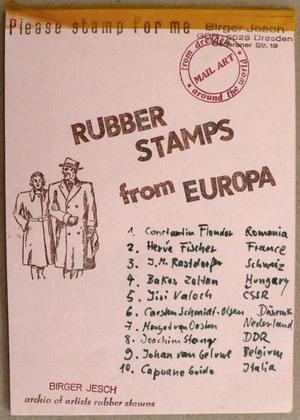 Please stamp for me
Birger Jesch
GDR 8023 Dresden
Str. 19
from dresden
MAIL ART
around the world
RUBBER
STAMPS
from EUROPA
1. Constantin Flondor Romania
2. Hervé Fischer France
3. J.M. Rastdorfer Schweiz
4. Bakos Zoltan Hungary
5. Jiri Valoch CSSR
6. Carsten Schmidt-Olsen Dänemk
7. Margot van Oosten Nederland
8. Joachim Stange DDR
9. Johan van Geluwe Belgium
10. Capuano Guido Italia
BIRGER JESCH
archiv of artists rubber stamps